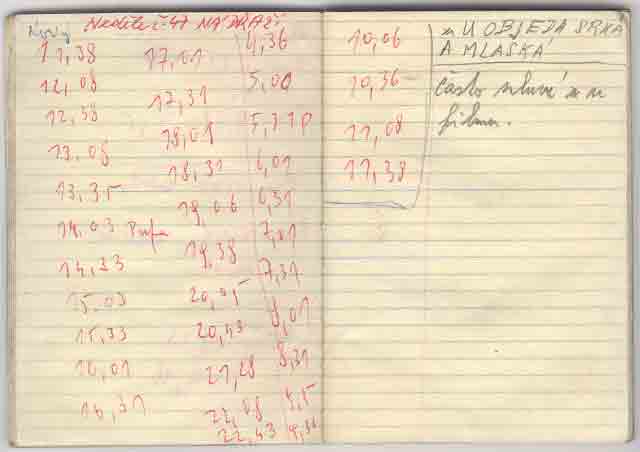 Nový Neděle č. 47 NÁDRAŽÍ
11,38
12,08
12,38
13,08
13,35
14,03
14,33
15.03
15,33
16,01
16,31
17,01
17,31
18,01
18,31
19,06
19,38
20,05
20,43
21,28
22,08
22,43
4,36
5,00
5,31P
6,01
6,31
7,01
7,31
8,01
8,31
9,36
10,06
10,36
11,08
11,38
U OBJEDA SRKÁ
A MLASKÁ
často mluví
filmu.